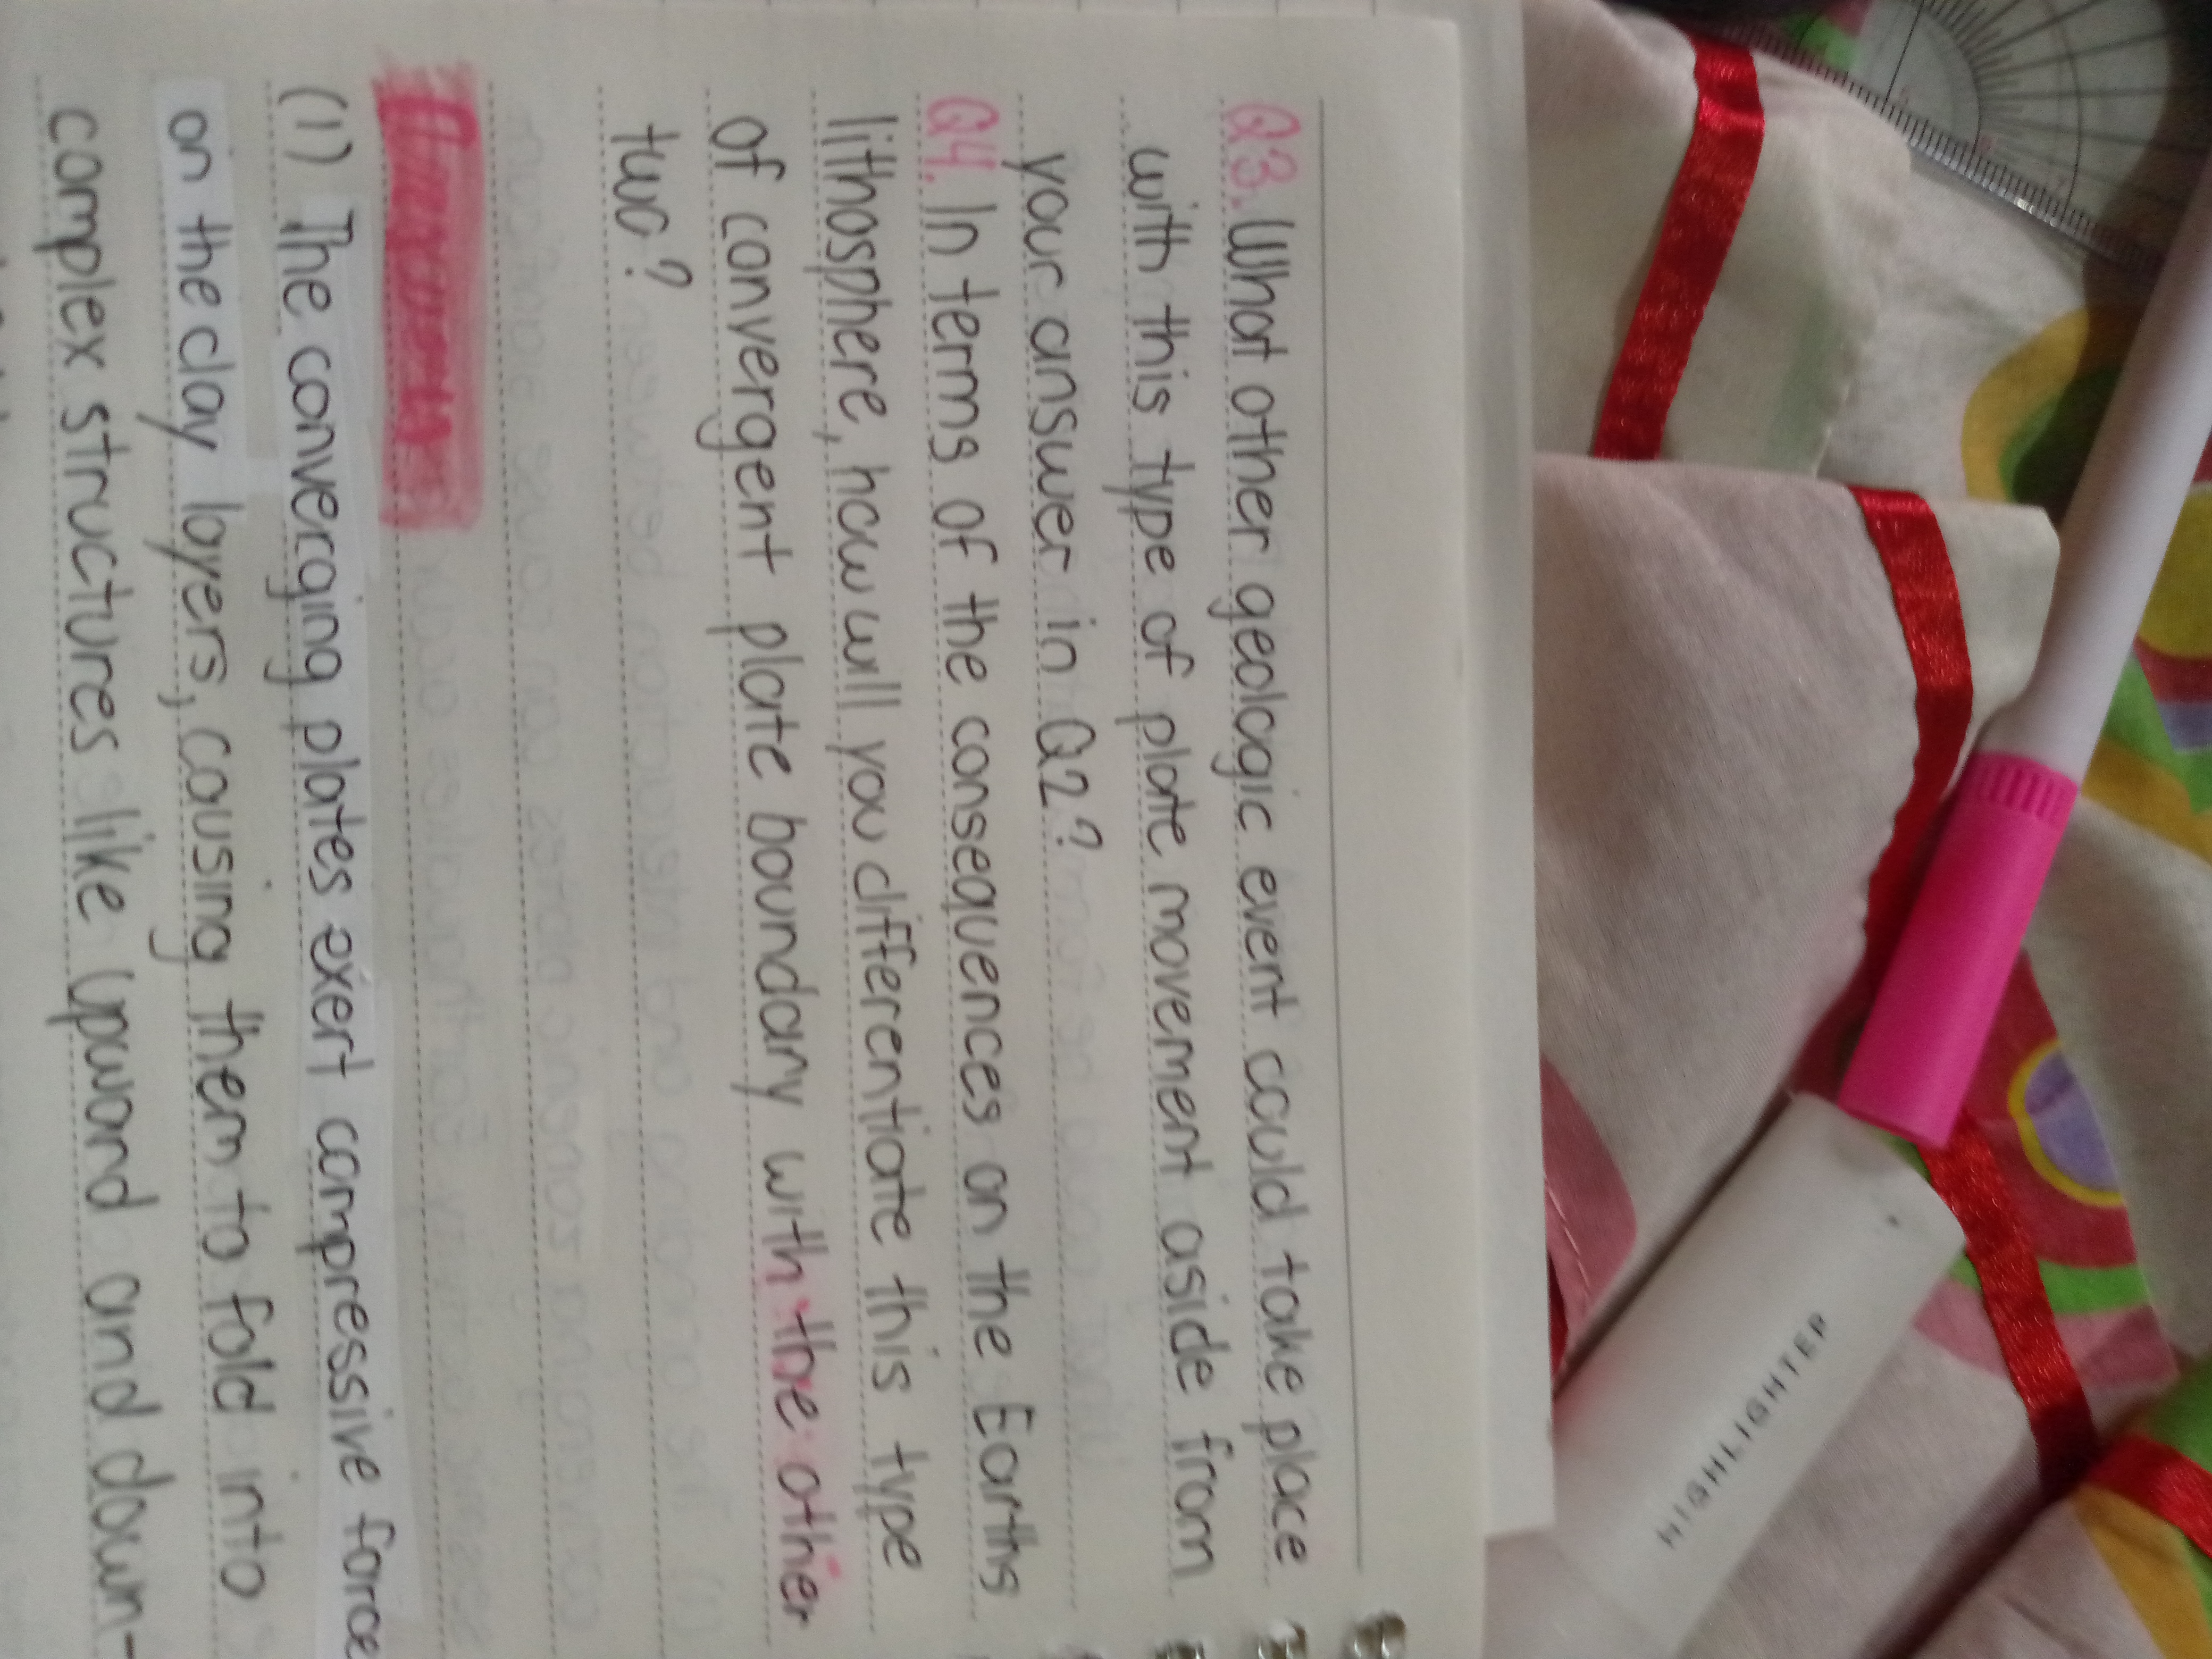 Q3. What other geologic event could take place
with this type of plate movement aside from
your answer in Q2?
Q4. In terms of the consequences on the Earths
lithosphere, how will you differentiate this type
of convergent plate boundary with the other
two?
Answers
(1) The converging plates exert compressive force
on the clay layers, causing them to fold into
complex structures like upward and down-
HIGHLIGHTER